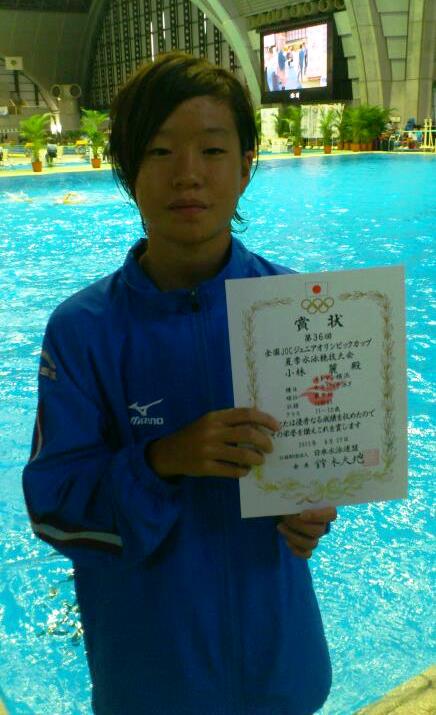 賞状
第36回
全国JOCジュニアオリンピックカップ
夏季水泳競技大会
小林 麗 殿
種目
記録
クラス 11~12歳
あなたは優秀なる成績を収めたので
その栄誉を讃えこれを賞します
8月27日
日本水泳連盟
会長 鈴木大地
MIZUNO